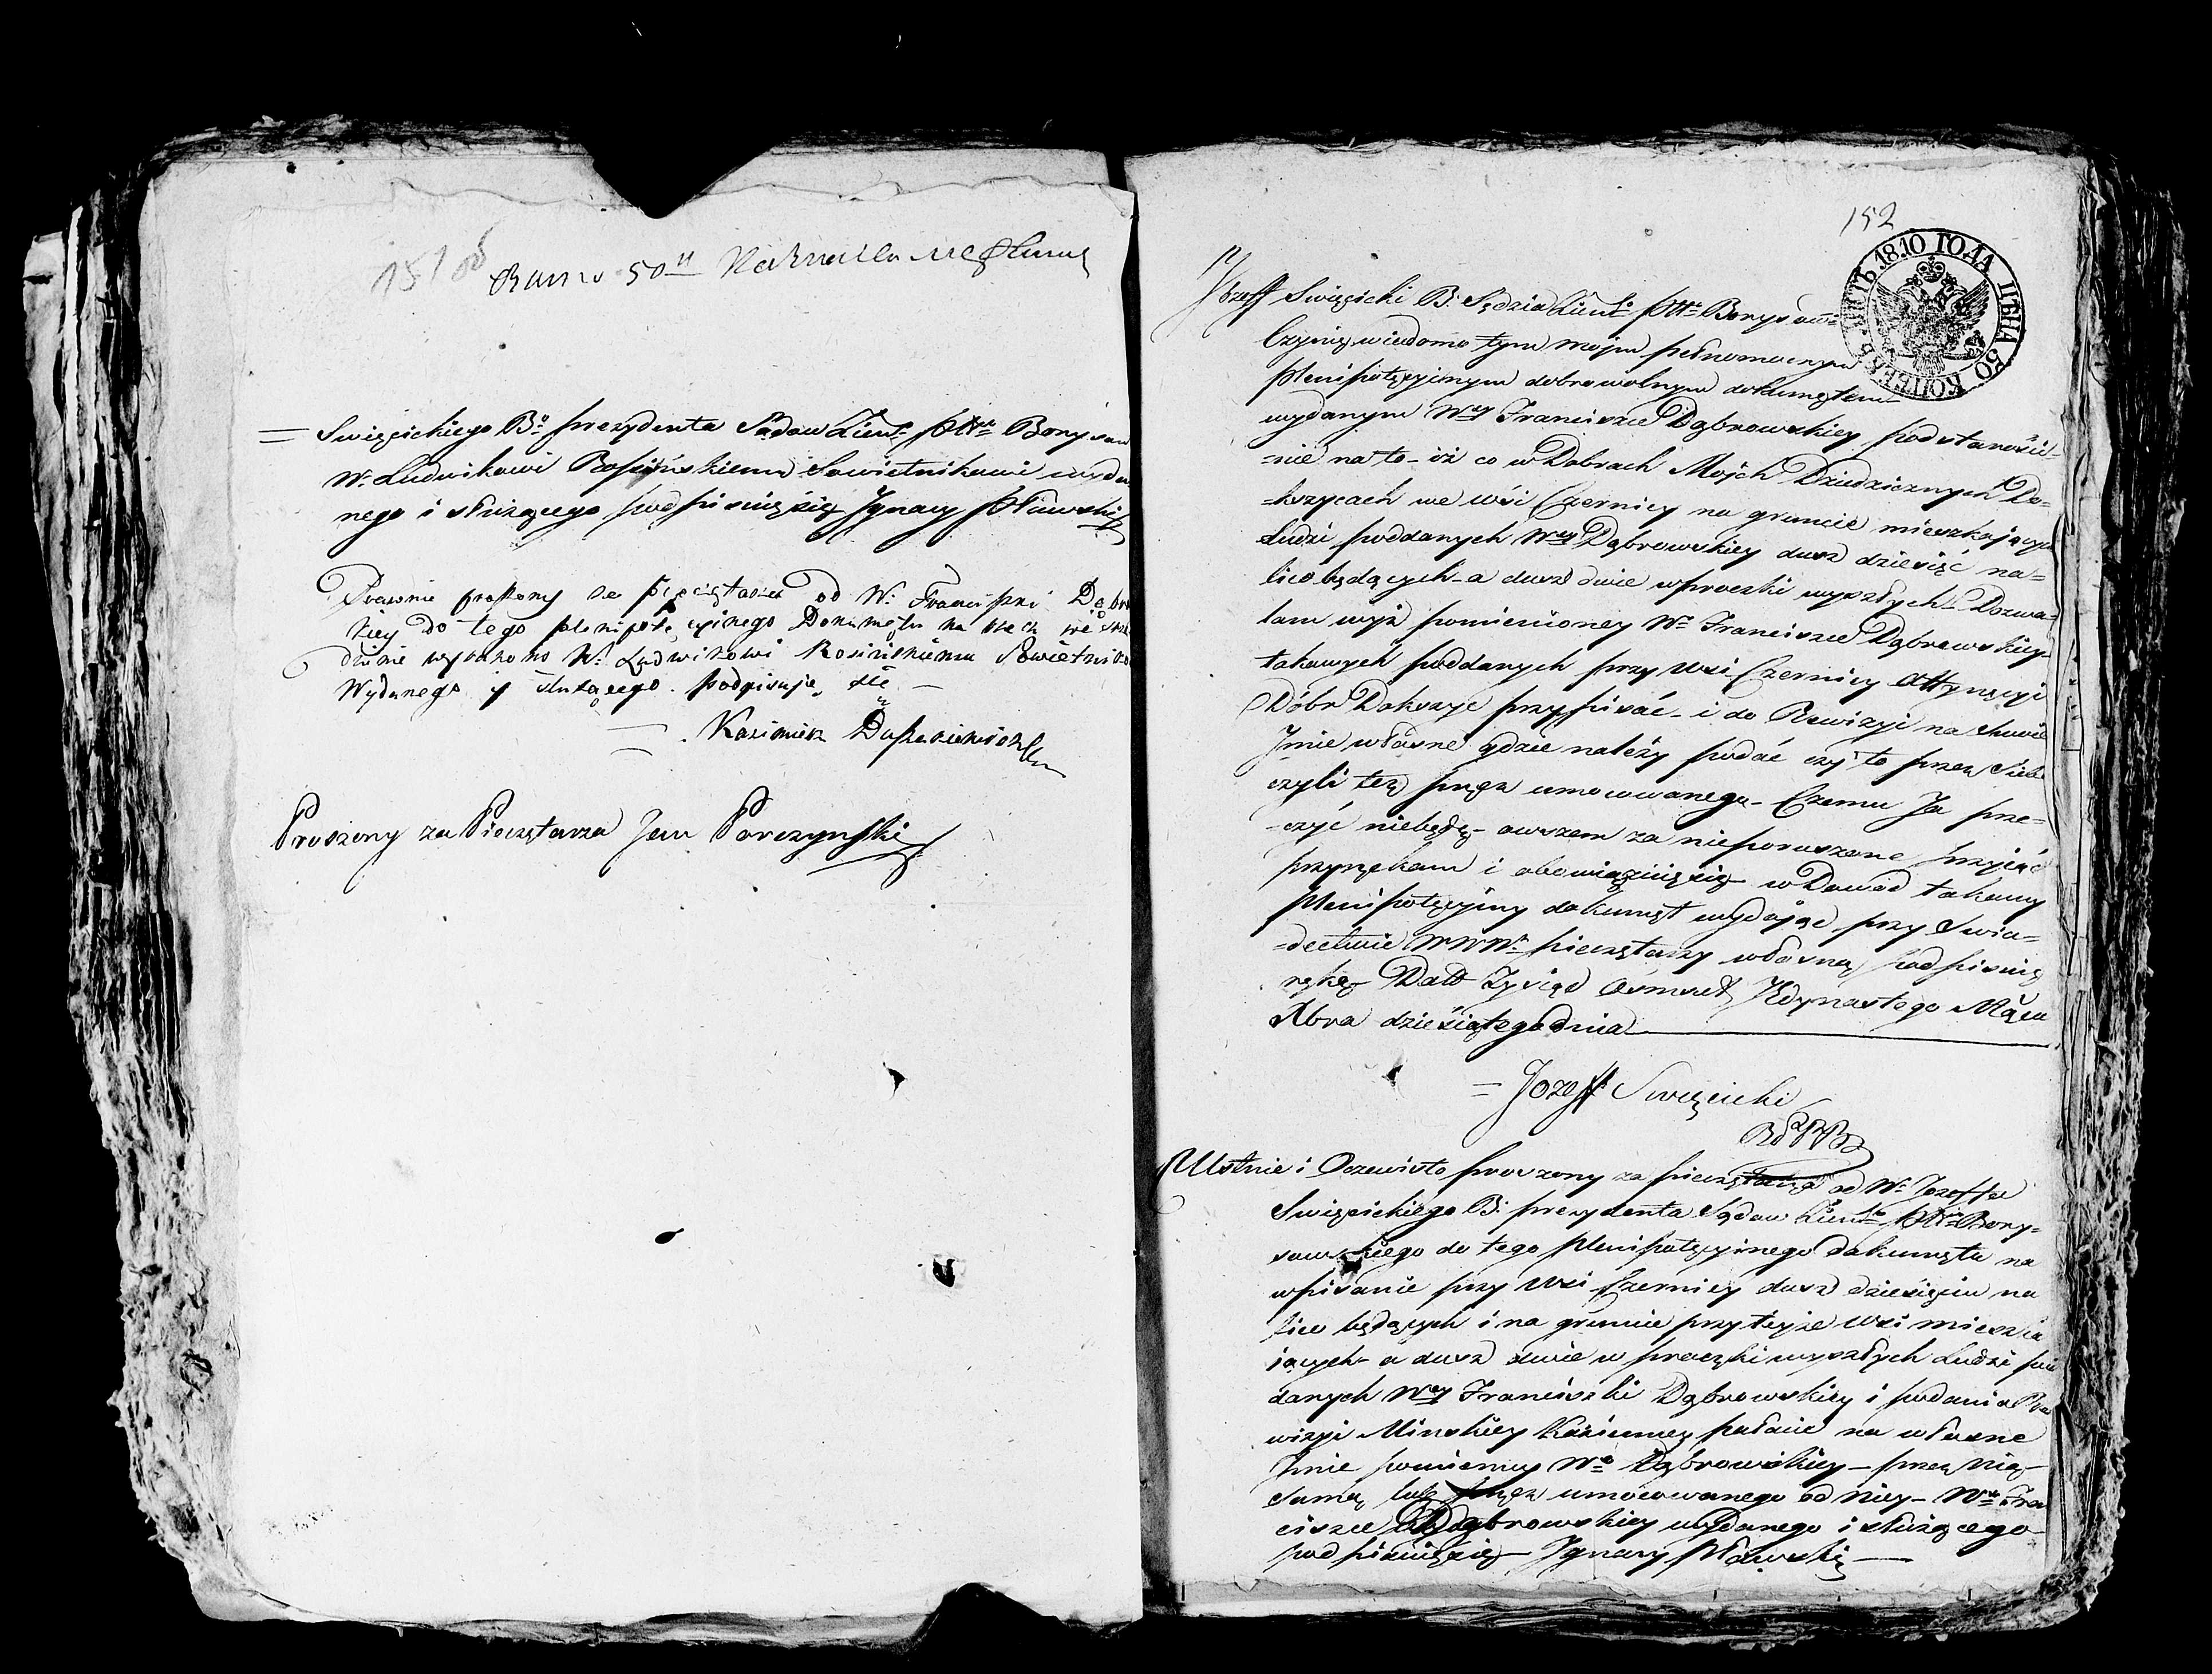 151об
Świącickiego B: prezydenta Sądów Ziem: Ptt Borysow
W: Ludwikowi Rosińskiemu Sowietnikowi wyda
nego i służącego podpisuię się Ignacy Sławski
Prawnie proszony za Pieczętarza od W: Franciszki Dąbro
kiey do tego plenipotęcyinego Dokumętu na
W: Ludwikowi Rosińskiemu Sowietniko
Wydanego y służącego podpisuję się
Kazimierz
Proszony za Pieczętarza Jan Porczynski
152
1810 ГОДА ЦѢНА 50 КОПѢЕКЪ
Jozeff Swięcicki B: Sędzia Ziem: Ptt Borysow:
Czynię wiadomo tym mojm pełnomocnym
plenipotęcyjnym dobrowolnym dokumętem
wydanym Wey Franciszce Dąbrowskiey podstarości-
-nie na to- iż co w Dobrach Mojch Dziedzicznych Do-
-kszycach we wsi Czernicy na gruncie mieszkających
Ludzi poddanych Wey Dąbrowskiey dusz dziesięć na-
lico będących- a dusz dwie w proczki wyszłych- Dozwa-
lam wyż pomienioney W Franciszce Dąbrowskiey
takowych poddanych przy wsi Czernicy Attynęcyi
Dóbr Dokszyc przypisać- i do Rewizyi na
Jmie własne gdzie należy podać czy to przez Siebie
czyli też przez umocowanego- Czemu Ja prze-
-czyć niebędę- owszem za nieporuszone przyjąć
przyrzekam i obowiązuię się w Dowod takowy
plenipotęcyjny dokumęt wydając przy Swia-
-dectwie WWW: pieczętarzy własną podpisuię
ręką Datt Tysiąc Osmset Jedynastego Mąca
Xbra dziesiątego dnia
= Jozeff Swięcicki
Ustnie i Oczewisto proszony za pieczętarza od W: Jozeffa
Swięcickiego B: prezydenta Sądow Ziem: Ptt Bory-
sowskiego do tego plenipotęcyjnego dokumętu na
wpisanie przy wsi Czernicy dusz dziesięciu na
lico będących i na gruncie przy teyże wsi mieszka
iących- a dusz dwie w proczki wyszłych Ludzi pod
danych Wey Franciszki Dąbrowskiey i podania Re
wizyi Minskiey Kazienney pałacie na własne
Jmie pomieniey W Dąbrowskiey- przez nią
samą lub przez umocowanego od niey- W Fran
ciszce Dąbrowskiey wydanego i służącego
podpisuię się- Ignacy Sławski